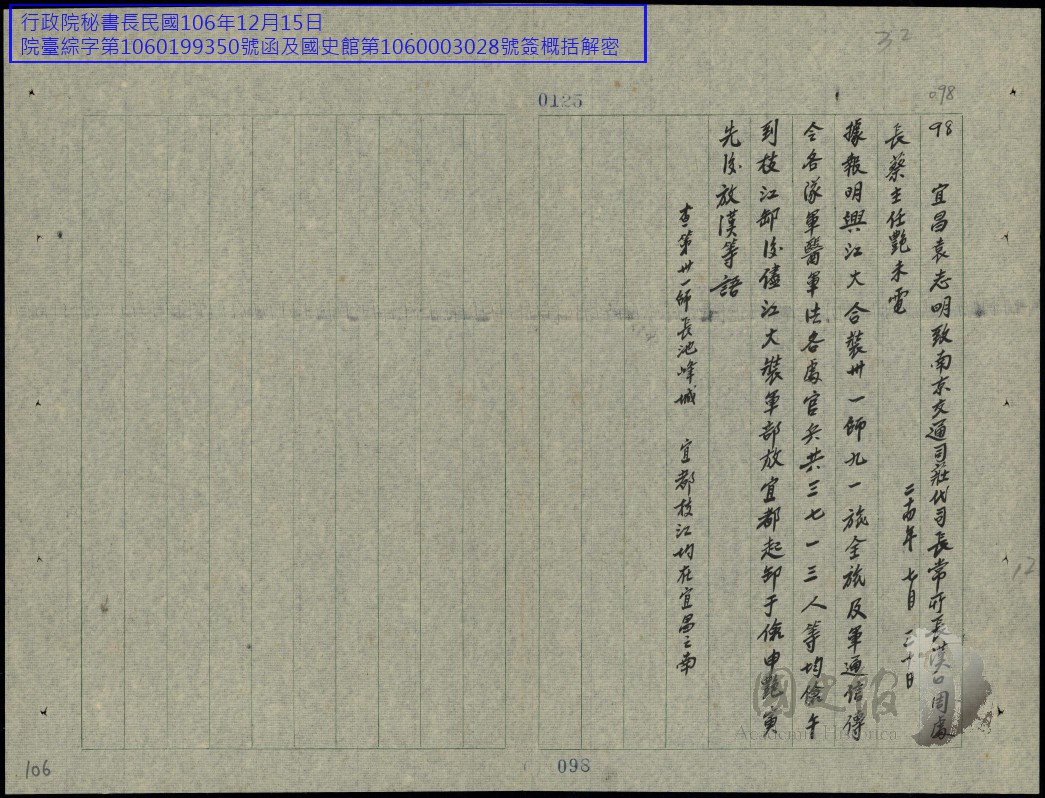 行政院秘書長民國106年12月15日
院臺綜字第1060199350號函及國史館第1060003028號簽概括解密
32
0125
098
98 宜昌袁志明致南京交通司莊代司長常所長漢口周處
長蔡主任艷未電 二十四年七月三十日
據報明興江大合裝卅一師九一旅全旅及軍通信傳
令各隊軍醫軍法各處官兵共三七一三人等均儉午
到枝江卸後儘江大裝軍部放宜都起卸于儉申艷寅
先後放漢等語
查第卅一師長池峰城 宜都枝江均在宜昌之南
12
國史館
Academia Historica
106
098